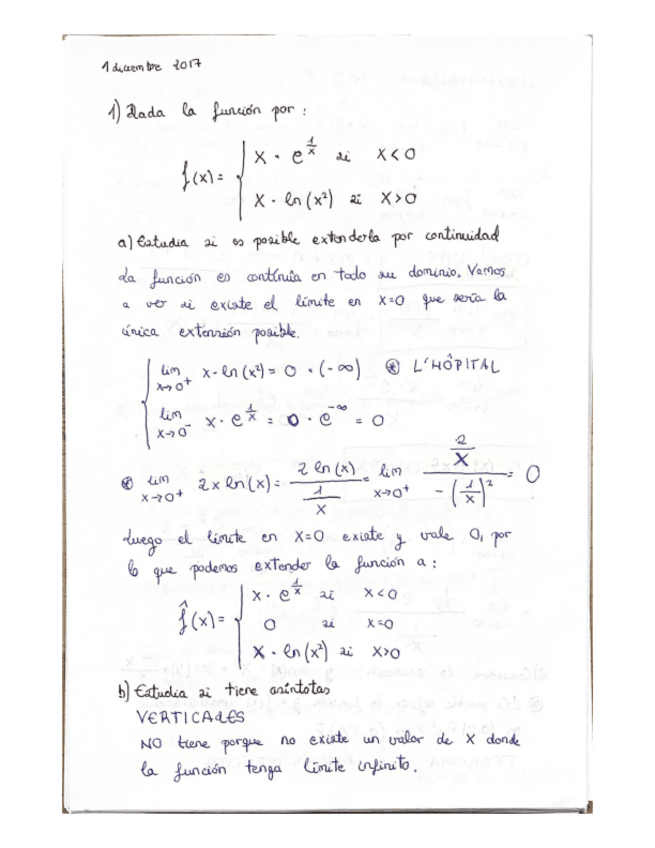 1 diciembre 2017
1) Dada la función por:
f(x)= { x · e^{1/x} si x<0
x · ln(x²) si x>0
a) Estudia si es posible extenderla por continuidad
La función es contínua en todo su dominio. Vamos
a ver si existe el límite en x=0 que sería la
única extensión posible.
lim x→0⁺ x·ln(x²) = 0 · (-∞) ⊛ L'HÔPITAL
lim x→0⁻ x · e^{1/x} = 0 · e^{-∞} = 0
⊛ lim x→0⁺ 2x ln(x) = 2 ln(x) / (1/x) = lim x→0⁺ (2/x) / (-(1/x)²) = 0
Luego el límite en x=0 existe y vale 0, por
lo que podemos extender la función a:
f̂(x)= { x · e^{1/x} si x<0
0 si x=0
x · ln(x²) si x>0
b) Estudia si tiene asíntotas
VERTICALES
NO tiene porque no existe un valor de x donde
la función tenga límite infinito.